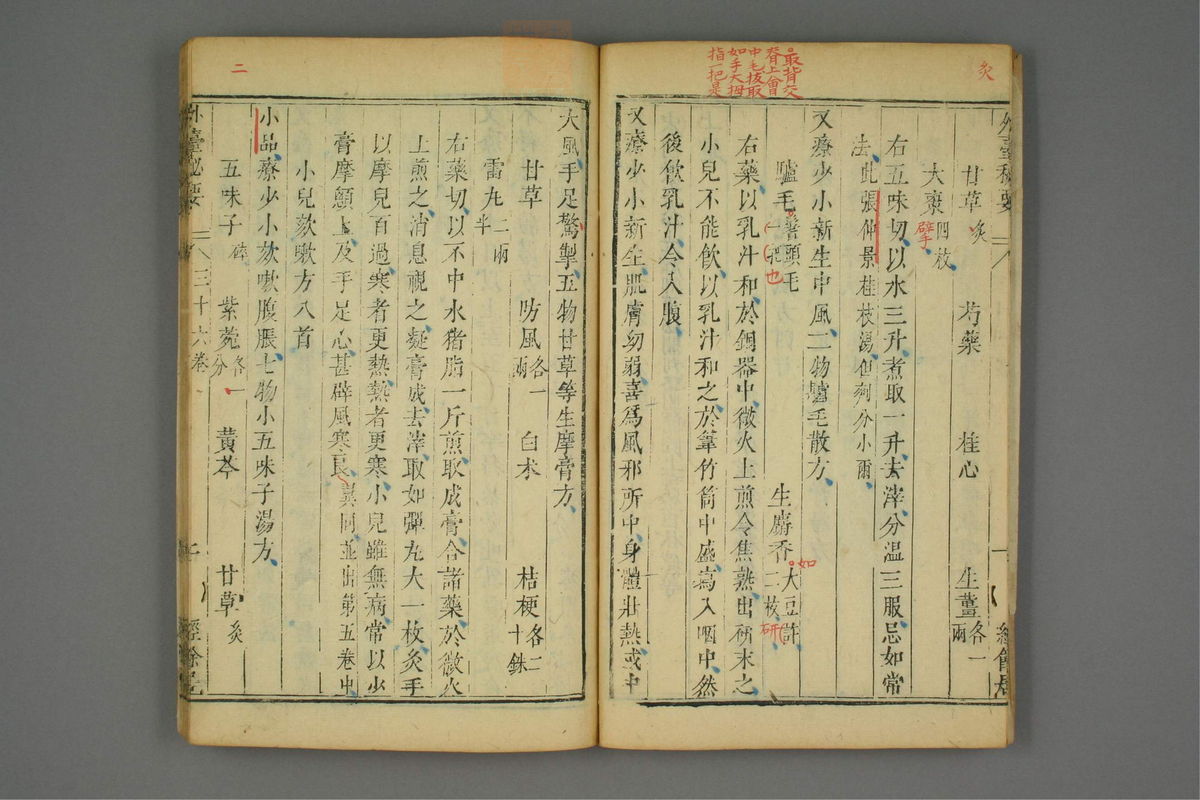 炙
外臺秘要
甘草炙 芍藥 桂心 生薑各一兩
大棗四枚擘
右五味切以水三升煮取一升去滓分溫三服忌如常
法此張仲景桂枝湯但劑分小爾
又療少小新生中風二物驢毛散方
驢毛一把也 生麝香二枚
。取背交脊上會中毛拔取如手大拇指一把是
右藥以乳汁和於銅器中微火上煎令焦熟出研末之
小兒不能飲以乳汁和之於葦竹筒中盛寫入咽中然
後飲乳汁令入腹
又療少小新生肌膚幼弱喜為風邪所中身體壯熱或中
二
大風手足驚掣五物甘草等生摩膏方
甘草 防風各一兩 白朮 桔梗各二十銖
雷丸二兩半
右藥切以不中水猪脂一斤煎取成膏合諸藥於微火
上煎之消息視之凝膏成去滓取如彈丸大一枚炙手
以摩兒百過寒者更熱熱者更寒小兒雖無病常以少
膏摩顖上及手足心甚辟風寒並出第五卷中
小兒欬嗽方八首
小品療少小欬嗽腹脹七物小五味子湯方
五味子碎 紫菀各一分 黃芩 甘草炙
外臺秘要 三十六卷 二 經餘居